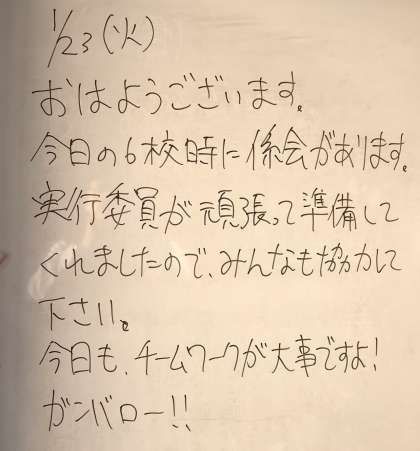 1/23(火)
おはようございます。
今日の6校時に係会があります。
実行委員が頑張って準備して
くれましたので、みんなも協力して
下さい。
今日も、チームワークが大事ですよ!
ガンバロー!!